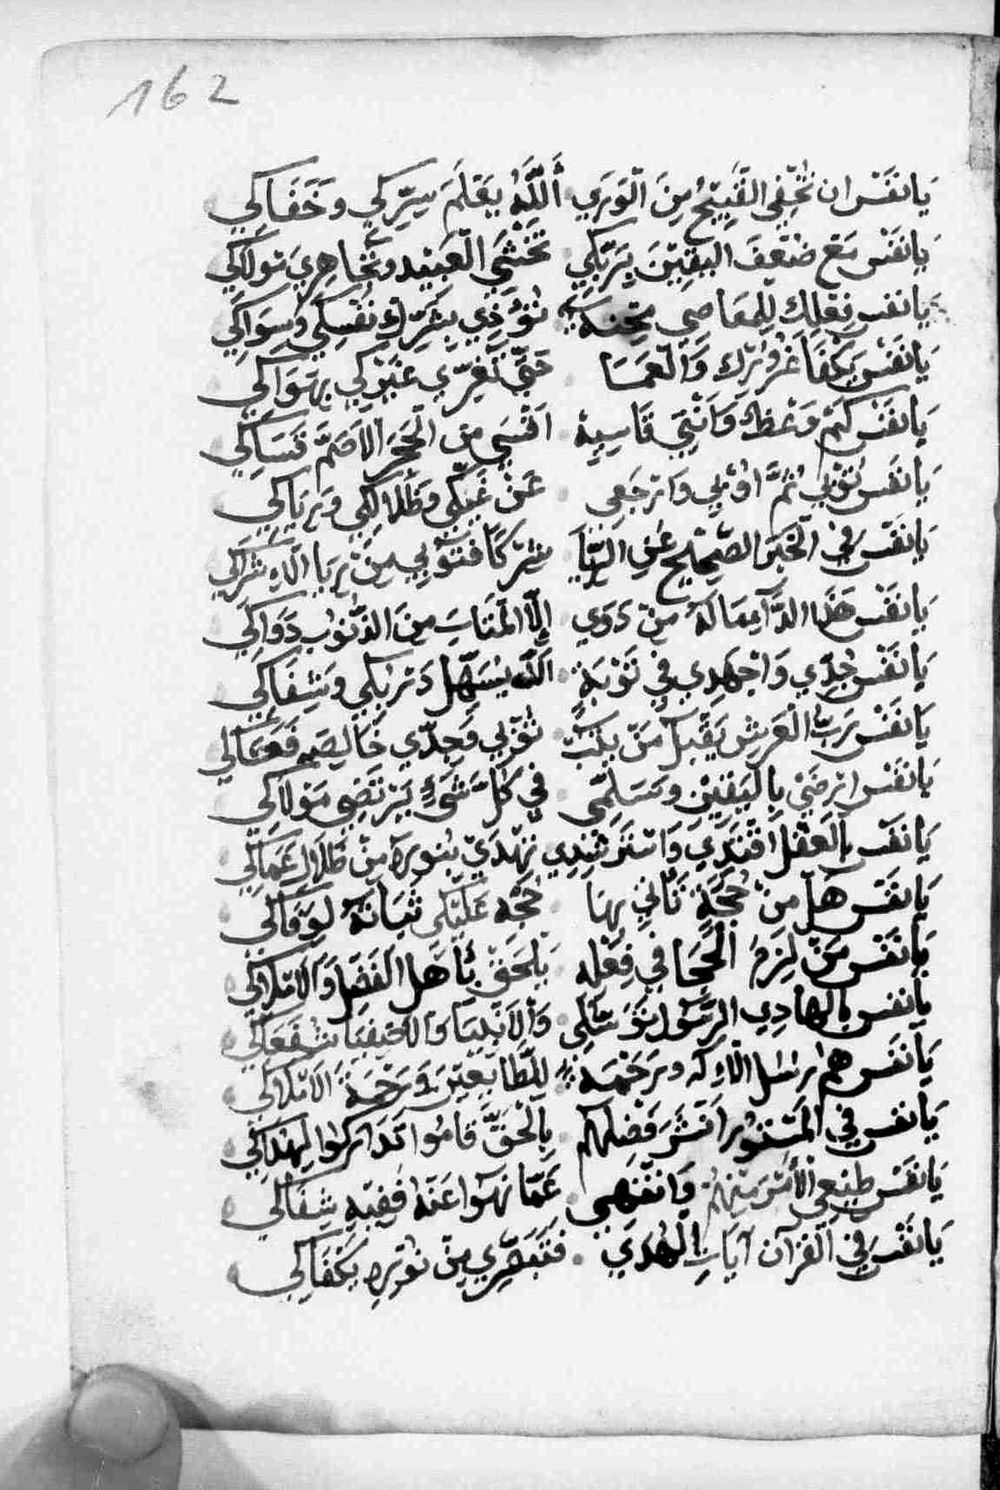 162
يَا نَفْس ان تُخْفِي القَبِيْحُ مِنَ الْوَرَي أَللَّهُ يَعْلَمَ سِرِّكِي وخَفَاكِي
يَا نَفْس مَع ضَعْفَ اليَقِيْنَ بِرَبِّكِي تَخْشَي الْعَبِيْد وتُجَاهِرِيَ مَولَاكِي
يا نفس فِعْلِكِ لِلْمَعَاصِي مِحِنَة تُؤْذِي بِشَرِّك نَفْسِكِي وَسِوَاكِي
يَا نَفْسَ يَكْفَا غروُرك وَالْعَمَا حَتَّي تَغُرِّي غَيْرِكِي بِهَوَاكِي
يَا نَفْس كَمْ وَعْظا وَانْتِي قَاسِيِة اقْسَي مِن الْحَجَر الاَصَمّ قَسَاكِي
يَا نَفْس تُوْبِي ثُمَّ اوْبِي وَارْجَعِي عَنْ غَيِّكِي وظَلَالِكِي وَرِيَاكِي
يَا نَفْس فِي الْخَبَر الصَّحِيْح عَنِ الرِّيَا شِرْكًا فَتُوْبِي مِنْ رِيَا الاِشْرَاكِي
يَا نَفْس هَذا الدَّآ مَالَهُ مِنْ دَوَي اِلّا الْمَتَابَ مِنَ الذّنُوْب دَوَاكِي
يَا نَفْس جُدِّي وَاجْهَدِي فِي تَوْبَةٍ اَللَّه يُسَهِّل دَرْبِكِي وَشِفَاكِي
يَا نَفْس رَبّ الْعَرْشِ يَقْبَل مَنْ يَتُبْ تُوْبِي فَجِدِّي خَالِصِي فَعَسَاكِي
يَا نَفْس ارْضَيْ بِالْيَقِيْن وَسَلِّمِي فِي كُلّ شَيْءٍ يَرْتَضِي مَوْلَاكِي
يَا نَفْس بِالْعَقْل اقْتَدَي وَاسْتَرْشِدِي تهْدَيْ بِنُورِهْ مِنْ ظَلَال عَمَاكِي
يَا نَفْس هَل مِنْ حُجَّةٍ تَاتِي بِهَا حُجّه عَلَيْكِي ثَبَاتَهُ لِوَفَاكِي
يَا نَفْس مَنْ لزِمَ الْحِجَا فِي فِعْلِه يَلْحَقْ بِأَهْل الْفَضْل وَالاَمْلَاكِي
يَا نفس بالهَادِي الرَّسُوْل تَوَسَّلِي وَالاَنْبِيَا وَالاَصْفِيَا شُفَعَاكِي
يَا نَفْس هُم رُسُل الاِلَه وَرَحْمَة لِلطَّايِعِيْنَ وَرَحْمَة الاَمْلَاكِي
يَا نفس فِي الْمَسْتُوْر انْتَشَرَ فَضْلهُم بِالْحَقّ قَامُوا تَدَارَكُوا لِهْدَاكِي
يَا نَفْس طِيْعِي الأَمْر مِنْهُمْ وَانْتَهِي عَمّا نَهَوا عَنهُ فَفِيْهِ شِفَاكِي
يَا نَفْسَ فِي الْقُرْآن آيَاتِ الْهُدَي فَتَبَصَّرِي مِنْ نُوْرِهِ يَكْفَاكِي